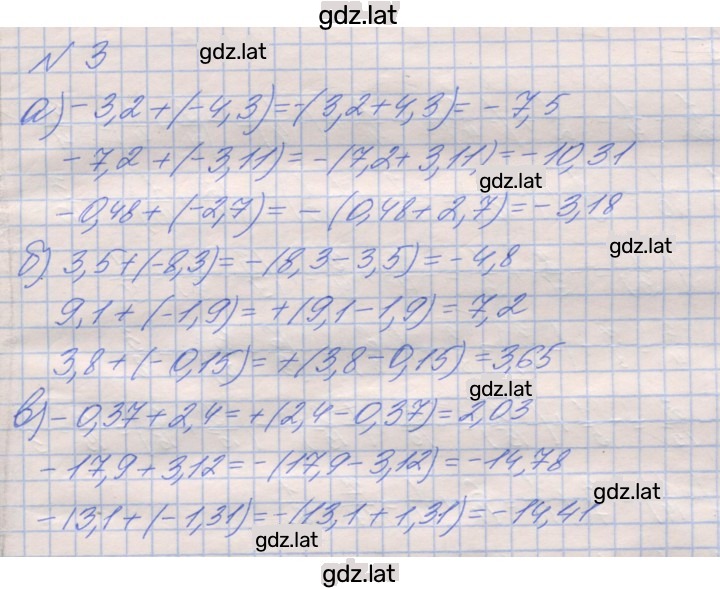 gdz.lat
№ 3
gdz.lat
а) -3,2+(-4,3)=-(3,2+4,3)= -7,5
-7,2+(-3,11)= -(7,2+3,11)=-10,31
gdz.lat
-0,48+(-2,7)= -(0,48+2,7)=-3,18
gdz.lat
б) 3,5+(-8,3)=-(8,3-3,5)=-4,8
9,1+(-1,9)=+(9,1-1,9)=7,2
3,8+(-0,15)=+(3,8-0,15)=3,65
gdz.lat
в) -0,37+2,4=+(2,4-0,37)=2,03
-17,9+3,12=-(17,9-3,12)=-14,78
gdz.lat
-13,1+(-1,31)=-(13,1+1,31)=-14,41
gdz.lat
gdz.lat